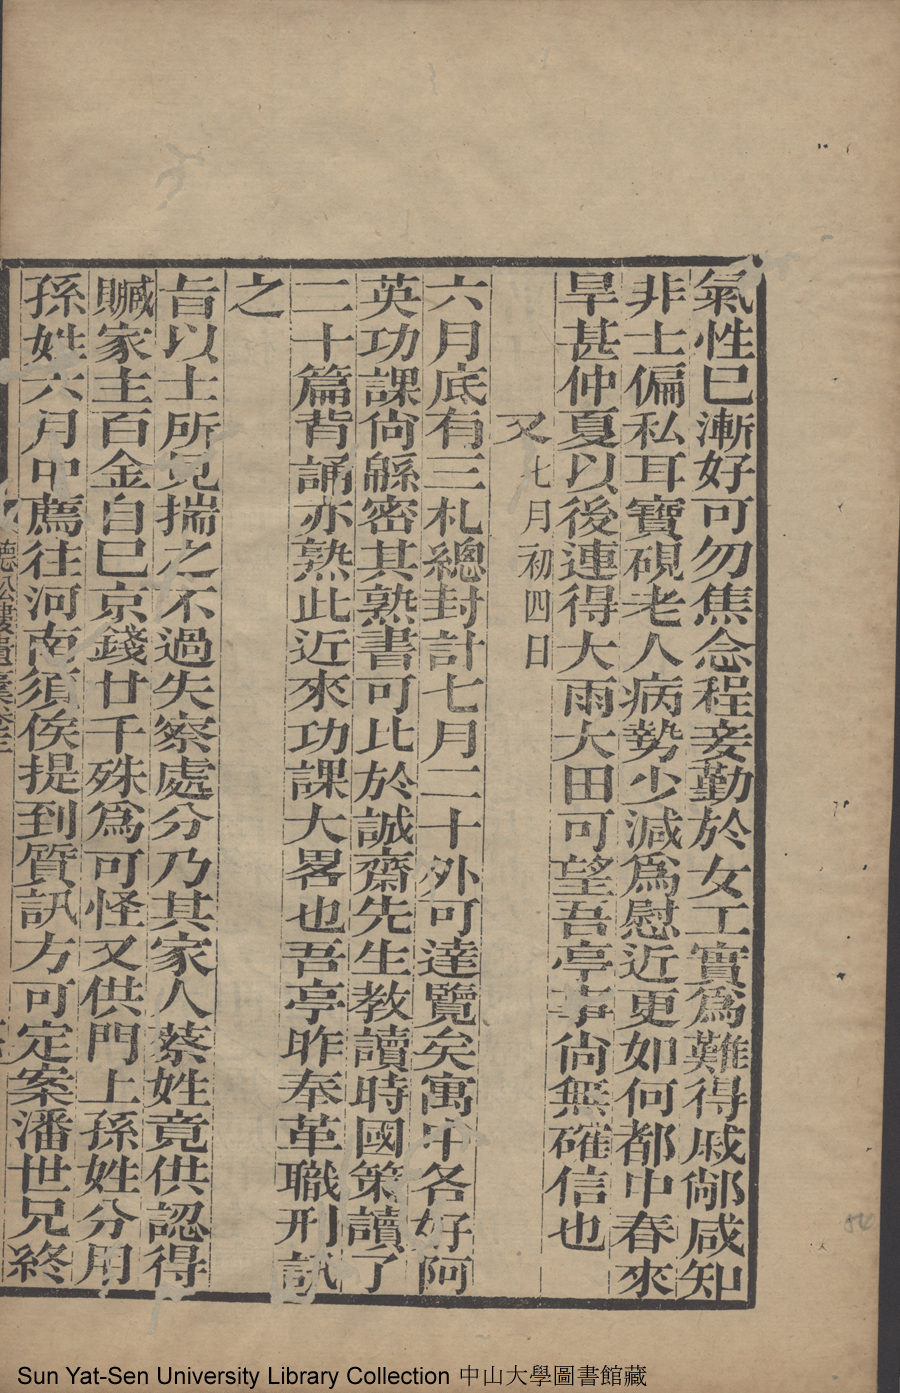 氣性已漸好可勿焦念程妾勤於女工實爲難得戚鄰咸知
非士偏私耳寶硯老人病勢少減爲慰近更如何都中春來
旱甚仲夏以後連得大雨大田可望吾亭事尙無確信也
又七月初四日
六月底有三札總封計七月二十外可達覽矣寓中各好阿
英功課尙緜密其熟書可比於誠齋先生教讀時國策讀了
二十篇背誦亦熟此近來功課大畧也吾亭昨奉革職刑訊
之
旨以士所見揣之不過失察處分乃其家人蔡姓竟供認得
贓家主百金自已京錢廿千殊爲可怪又供門上孫姓分用
孫姓六月中薦往河南須俟提到質訊方可定案潘世兄終
Sun Yat-Sen University Library Collection 中山大學圖書館藏